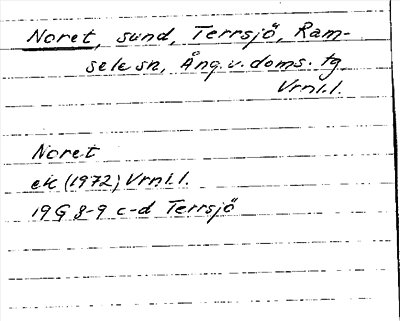 Noret, sund, Terrsjö, Ram-
sele sn, Ång. v. doms. tg
Vrnl.l.
Noret
ek (1972) Vrnl.l.
19G 8-9 c-d Terrsjö